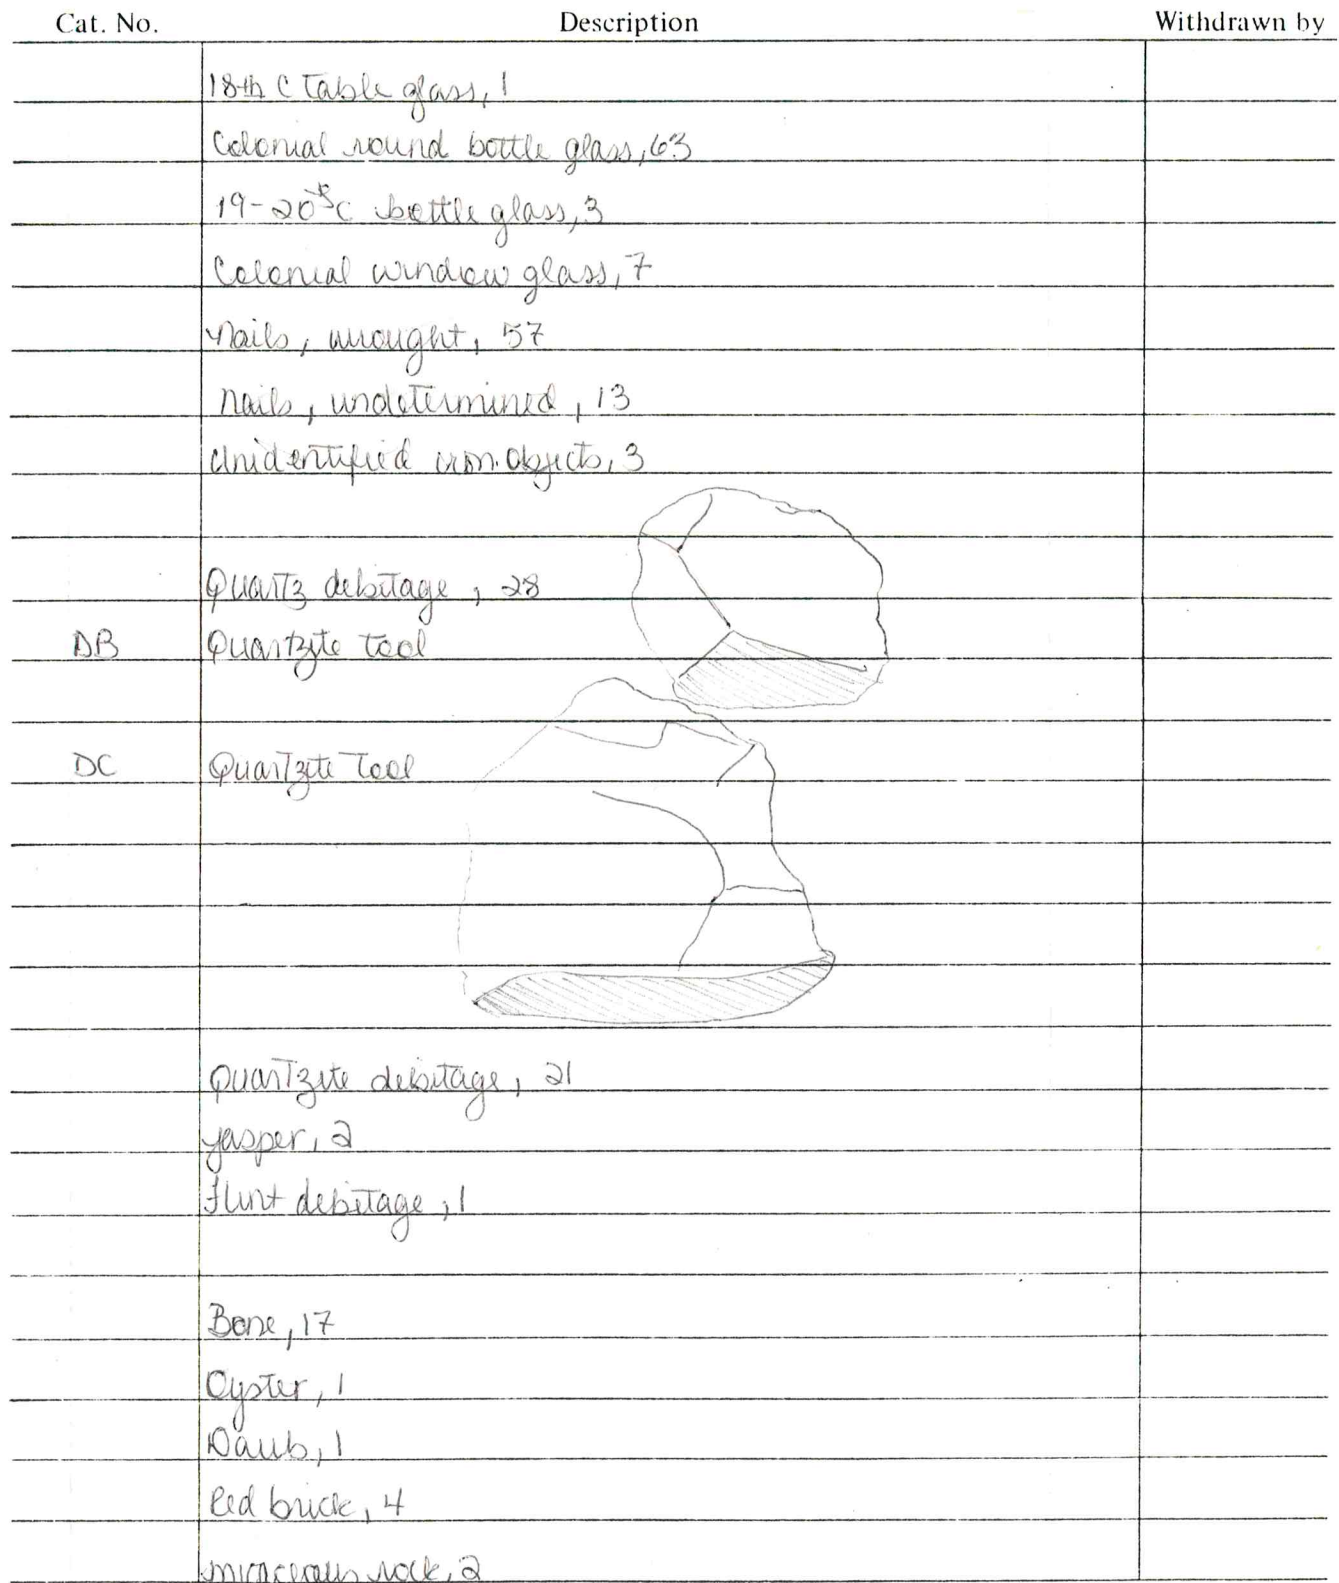 Cat. No. Description Withdrawn by
18th C Table glass, 1
Colonial round bottle glass, 63
19-20thC bottle glass, 3
Colonial window glass, 7
Nails, wrought, 57
Nails, undetermined, 13
Unidentified iron objects, 3
Quartz debitage, 28
DB Quartzite tool
DC Quartzite tool
Quartzite debitage, 21
Jasper, 2
Flint debitage, 1
Bone, 17
Oyster, 1
Daub, 1
Red brick, 4
micaceous rock, 2